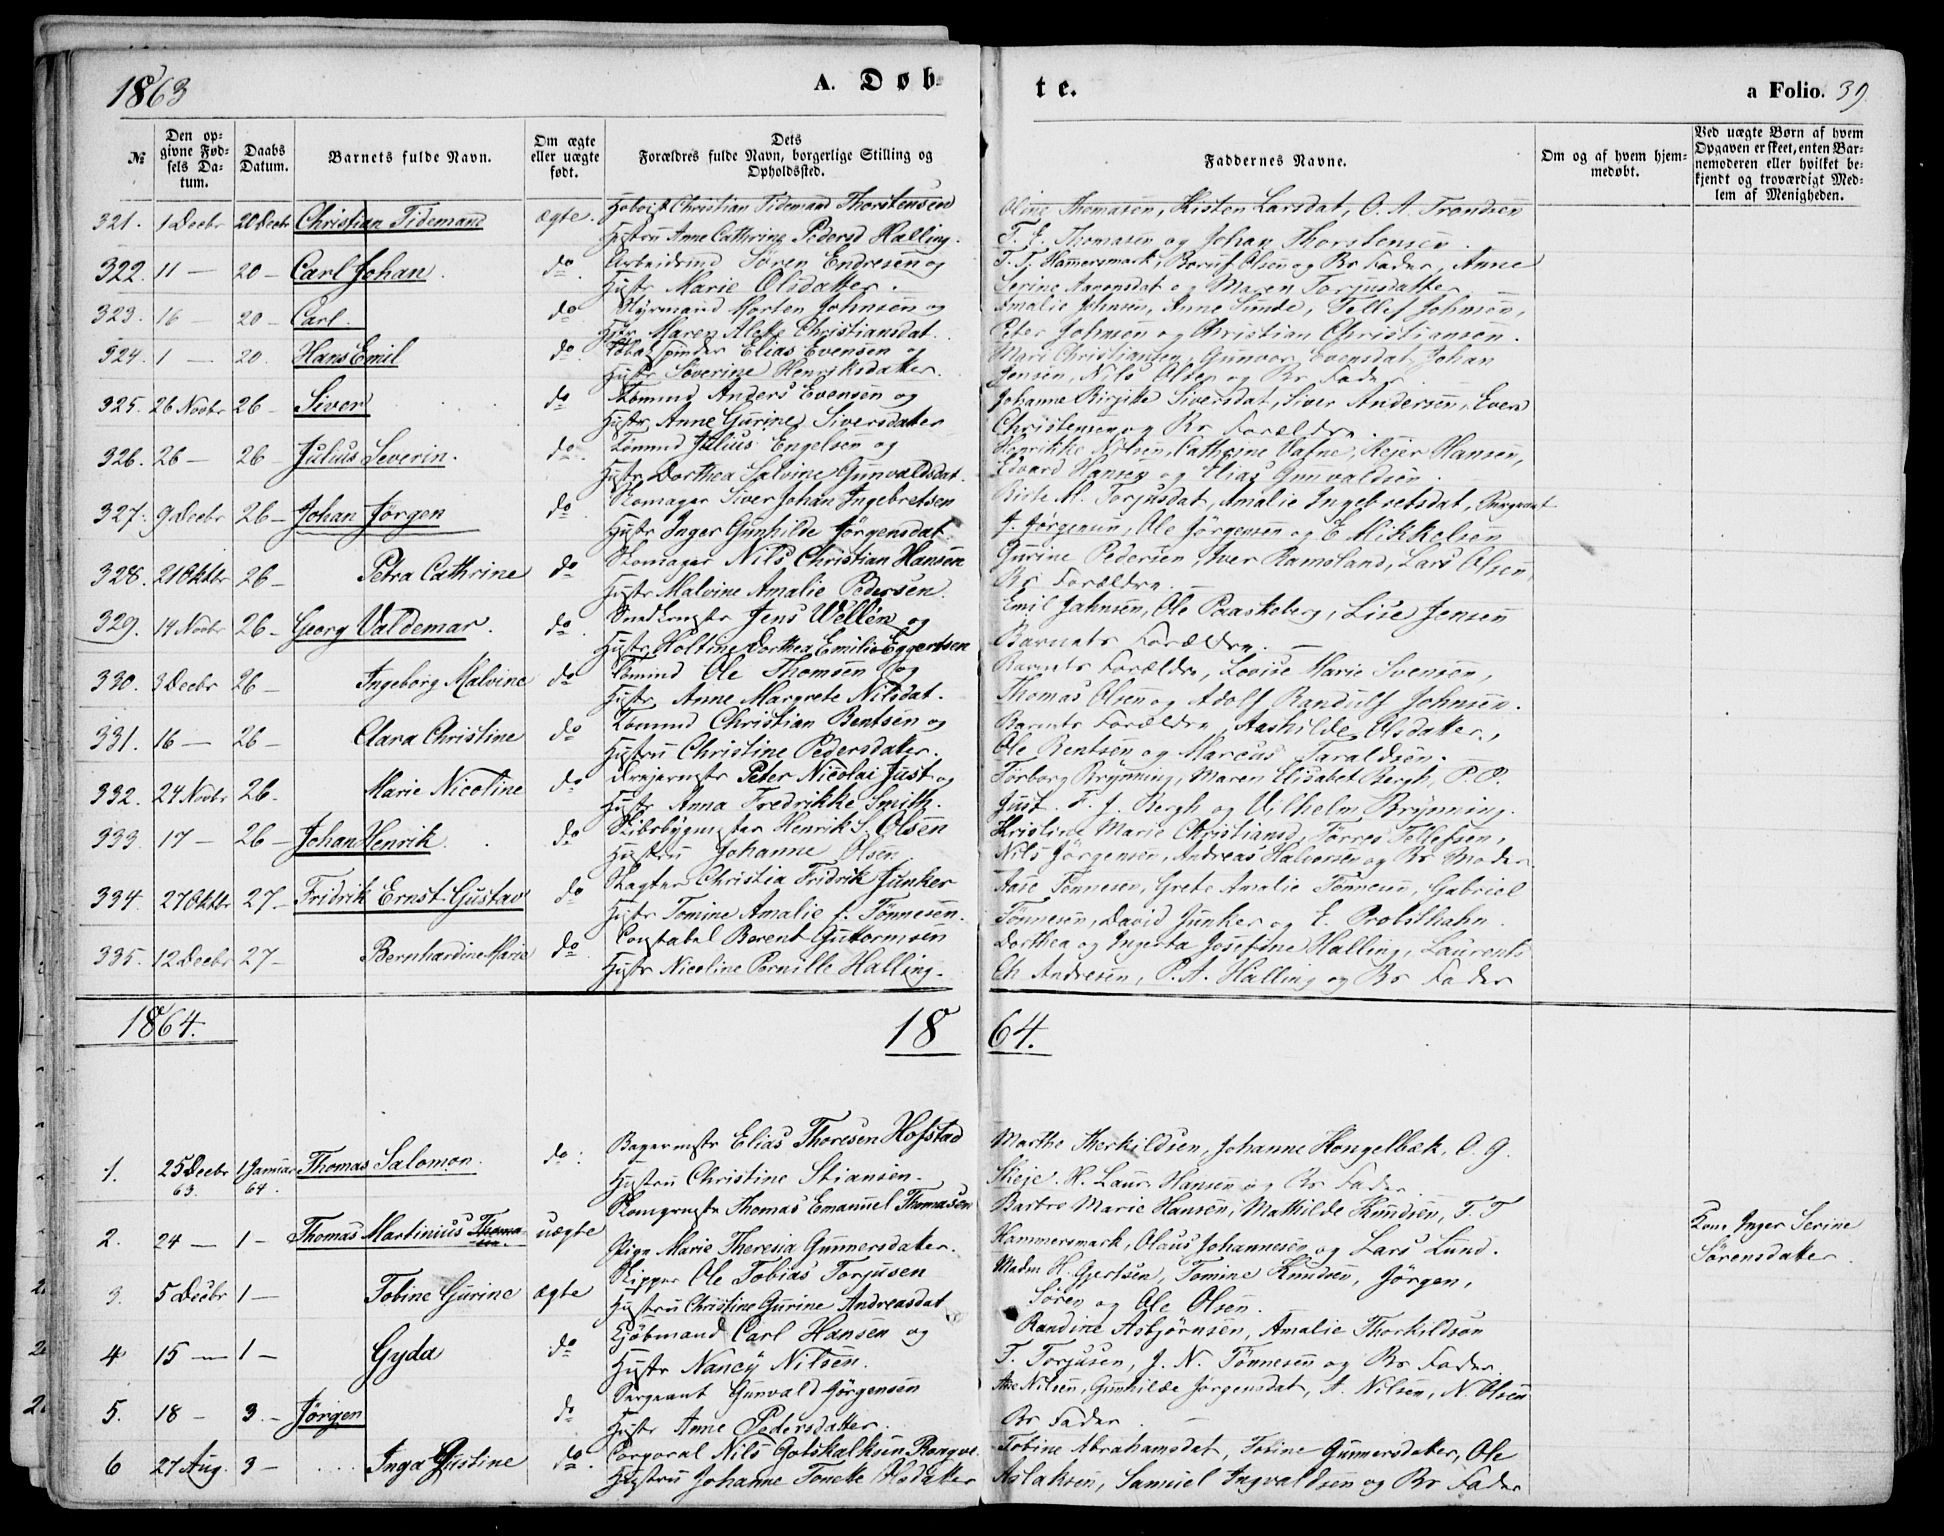 1863
A. Døb-
te.
a Folio. 39.
№
Den op-
givne Fød-
sels Da-
tum.
Daabs
Datum.
Barnets fulde Navn.
Om ægte
eller uægte
født.
Dets
Forældres fulde Navn, borgerlige Stilling og
Opholdssted.
Faddernes Navne.
Om og af hvem hjem-
medøbt.
Ved uægte Børn af hvem
Opgaven er skeet, enten Bar-
nemoderen eller hvilket be-
kjendt og troværdigt Med-
lem af Menigheden.
321. 1 Decbr 20 Decbr Christian Tidemand ægte. Christian Tidemand Thorstensen
Hustru Anne Cathrine Pedersd Halling.
Oline Thomasen, Kisten Larsdat, O. A. Trondsen
T. E. Thomasen og Johan Thorstensen.
322. 11 — 20 — Carl Johan. do Arbeidsmd Søren Endresen og
Hustr Marie Olsdatter.
T. T. Hammersmark, Olsen og Bs Fader, Anne
Serine og Maren Torjusdatter
323. 16 — 20 — Carl. do Styrmand Morten Johnsen og
Hustr Maren Alette Christiansdat.
Amalie Johnsen, Anne Sunde, Tellef Johnsen,
Peter Johnsen og Christian Christiansen.
324. 1 — 20. Hans Emil do Tobakspinder Elias Evensen og
Hustr Severine Henriksdatter.
Mari Christiansen, Gunvor Evensdat, Johan
Jensen, Nils Olsen og Bs Fader
325. 26 Novbr 26 — Siver do Tømmd Anders Evensen og
Hustr Anne Gurine Siversdatter
Johanne Birgitte Siversdat, Siver Andersen, Even
Christensen og Bs Forældre.
326. 26 — 26 — Julius Severin. do. Tømmd Julius Engelsen og
Hustr Dorthea Salvine Gunvaldsdat.
Henrikke Nilsen, Cathrine Vatne, Reier Hansen,
Edvard Hansen og Elias Gunvaldsen.
327. 9 Decbr 26 — Johan Jørgen do Skomager Siver Johan Ingebretsen
Hustr Inger Gunhilde Jørgensdat.
M. Torjusdat, Amalie Ingebretsdat,
A. Jørgensen, Ole Jørgensen og E Mikkelsen
328. 21 Oktbr 26 — Petra Cathrine do Skomager Nils Christian Hansen
Hustr Malvine Amalie Pedersen.
Gurine Pedersen, Iver Ramsland, Lars Olsen,
Bs Forældre.
329. 14 Novbr 26 — Georg Valdemar. do Jens Wellén og
Hustr Holtine Dorthea Emilie Eggertsen
Emil Jahnsen, Ole Paaskeberg, Lise Jensen
Barnets Forældre.
330. 3 Decbr 26 — Ingeborg Malvine do Tømmd Ole Thomsen og
Hustr Anne Margrete Nilsdat.
Barnets Forældre, Lovise Marie Svensen,
Thomas Olsen og Adolf Randulf Johnsen.
331. 16 — 26 — Clara Christine do Tømmd Christian Bentsen og
Hustru Christine Pedersdatter.
Barnets Forældre, Aashilde Olsdatter,
Ole Bentsen og Marcus Taraldsen.
332. 24 Novbr 26. Marie Nicoline do Dreiermstr Peter Nicolai Just og
Hustr Anna Fredrikke Smith.
Torborg Brynning, Maren Elisabet Bergh, P. P.
Just. F. J. Bergh og Vilhelm Brynning.
333. 17 — 26 — Johan Henrik. do Skibsbygmester Henrik S. Olsen
Hustru Johanne Olsen.
Kristine Marie Christiansd, Tørres Tellefsen,
Nils Jørgensen, Andreas Halvorsen og Bs Moder
334. 27 Oktbr 27 — Fridrik Ernst Gustav do Slagter Christia Fridrik Junker
Hustr Tomine Amalie f. Tønnesen.
Aase Tønnesen, Grete Amalie Tønnesen, Gabriel
Tønnesen, David Junker og E. Probsthahn.
335. 12 Decbr 27 — Bernhardine Marie do Constabel Berent Guttormsen
Hustr Nicoline Pernille Halling.
Dorthea og Ingerta Josefine Halling, Laurents
Ch Andresen, P. A. Halling og Bs Fader
1864.
18 64.
1. 25 Decbr 63. 1 Januar 64. Thomas Salomon. do. Bagermstr Elias Thoresen Hofstad
Hustru Christine Stiansen.
Marthe Therkildsen, Johanne Kongelbæk, O. G.
Skeje. H. Laur. Hansen og Bs Fader.
2. 24 — 1 — Thomas Martinius Thoma-
sen. uægte Thomas Emanuel Thomasen
Pige Marie Theresia Gunnersdatter.
Marie Hansen, Mathilde Knudsen, T. T
Hammersmark, Olaus Johannesen og Lars Lund.
Kone Inger Serine
Sørensdatter
3. 5 Decbr 1 — Tobine Gurine ægte Skipper Ole Tobias Torjusen
Hustru Christine Gurine Andreasdat
Madm H. Gjertsen, Tomine Knudsen, Jørgen,
Søren og Ole Olsen.
4 15 — 1 — Gyda do Kjøbmand Carl Hansen og
Hustr Nancy Nilsen.
Randine Asbjørnsen, Amalie Thorkildsen
T. Torjusen, J. N. Tønnesen og Bs Fader.
5. 18 — 3. — Jörgen do Sergeant Gunvald Jörgensen
Hustr Anne Pedersdatter.
Nilsen, Gunhilde Jørgensdat, A. Nilsen, N. Olsen
Bs Fader.
6 27 Aug. 3 — Inga Justine do. Corporal Nils Gotskalksen
Hustru Johanne Tonette Olsdatter
Tobine Abrahamsdat, Tobine Gunnersdatter, Ole
Aslaksen, Samuel Ingvaldsen og Bs Fader